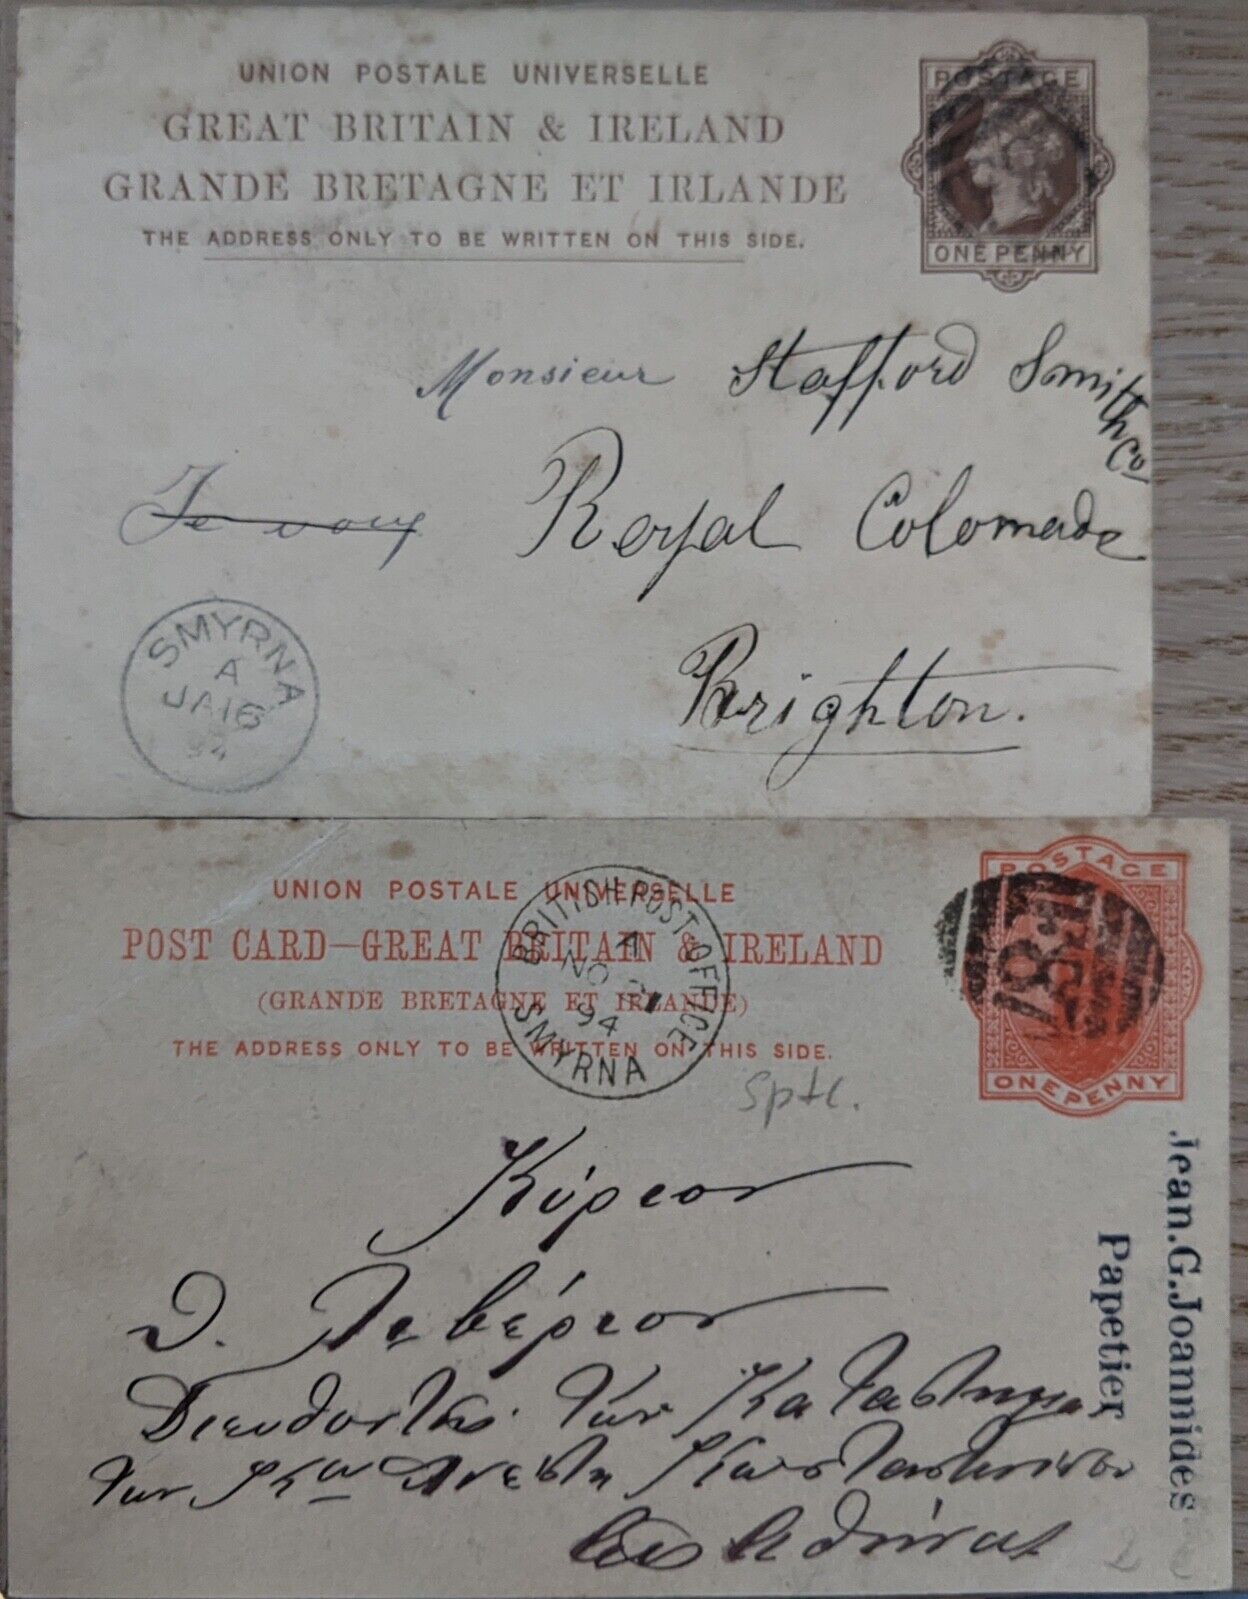 UNION POSTALE UNIVERSELLE
GREAT BRITAIN & IRELAND
GRANDE BRETAGNE ET IRLANDE
THE ADDRESS ONLY TO BE WRITTEN ON THIS SIDE.
POSTAGE
ONE PENNY
Monsieur Stafford Smith
Co
Je vous
Royal Colonade
Brighton.
SMYRNA
A
JA 16
94
UNION POSTALE UNIVERSELLE
POST CARD—GREAT BRITAIN & IRELAND
(GRANDE BRETAGNE ET IRLANDE)
THE ADDRESS ONLY TO BE WRITTEN ON THIS SIDE.
BRITISH POST OFFICE
A
NO
94
SMYRNA
POSTAGE
F87
ONE PENNY
Sptl.
Κύριον
Διευθυντὴν τῶν Καταστημα
τῶν Κωνσταντινίδου
Ἀθήνας
Jean.G.Joannides
Papetier
2